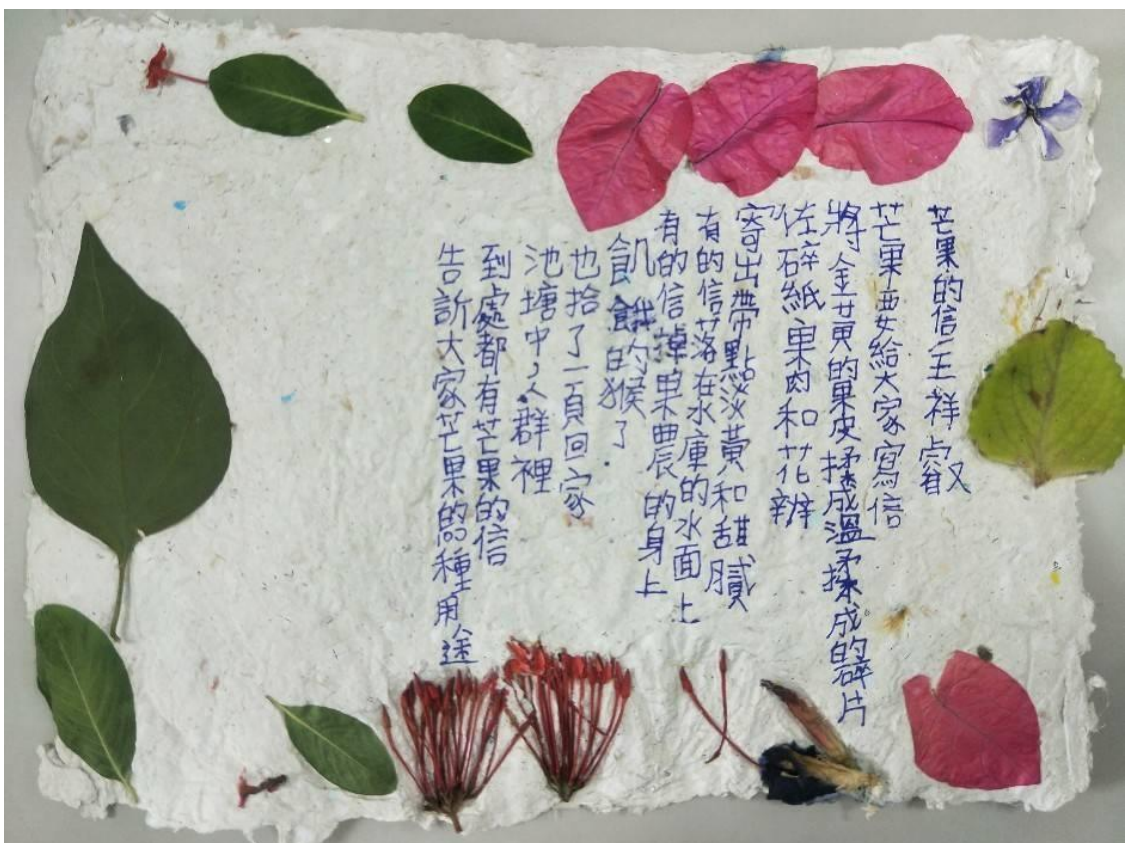 芒果的信王祥叡
芒果要給大家寫信
將金黃的果皮揉成溫揉成的碎片
佐碎紙果肉和花辦
寄出帶點淡淡黃和甜膩
有的信落在水庫的水面上
有的信掉果農的身上
飢餓的猴了
也拾了一頁回家
池塘中,人群裡
到處都有芒果的信
告訴大家芒果的種用途